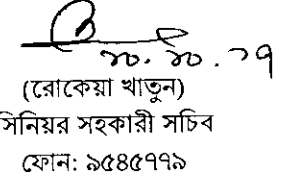 ২০.২০.১৭
(রোকেয়া খাতুন)
সিনিয়র সহকারী সচিব
ফোন: ৯৫৪৫৭৭৯